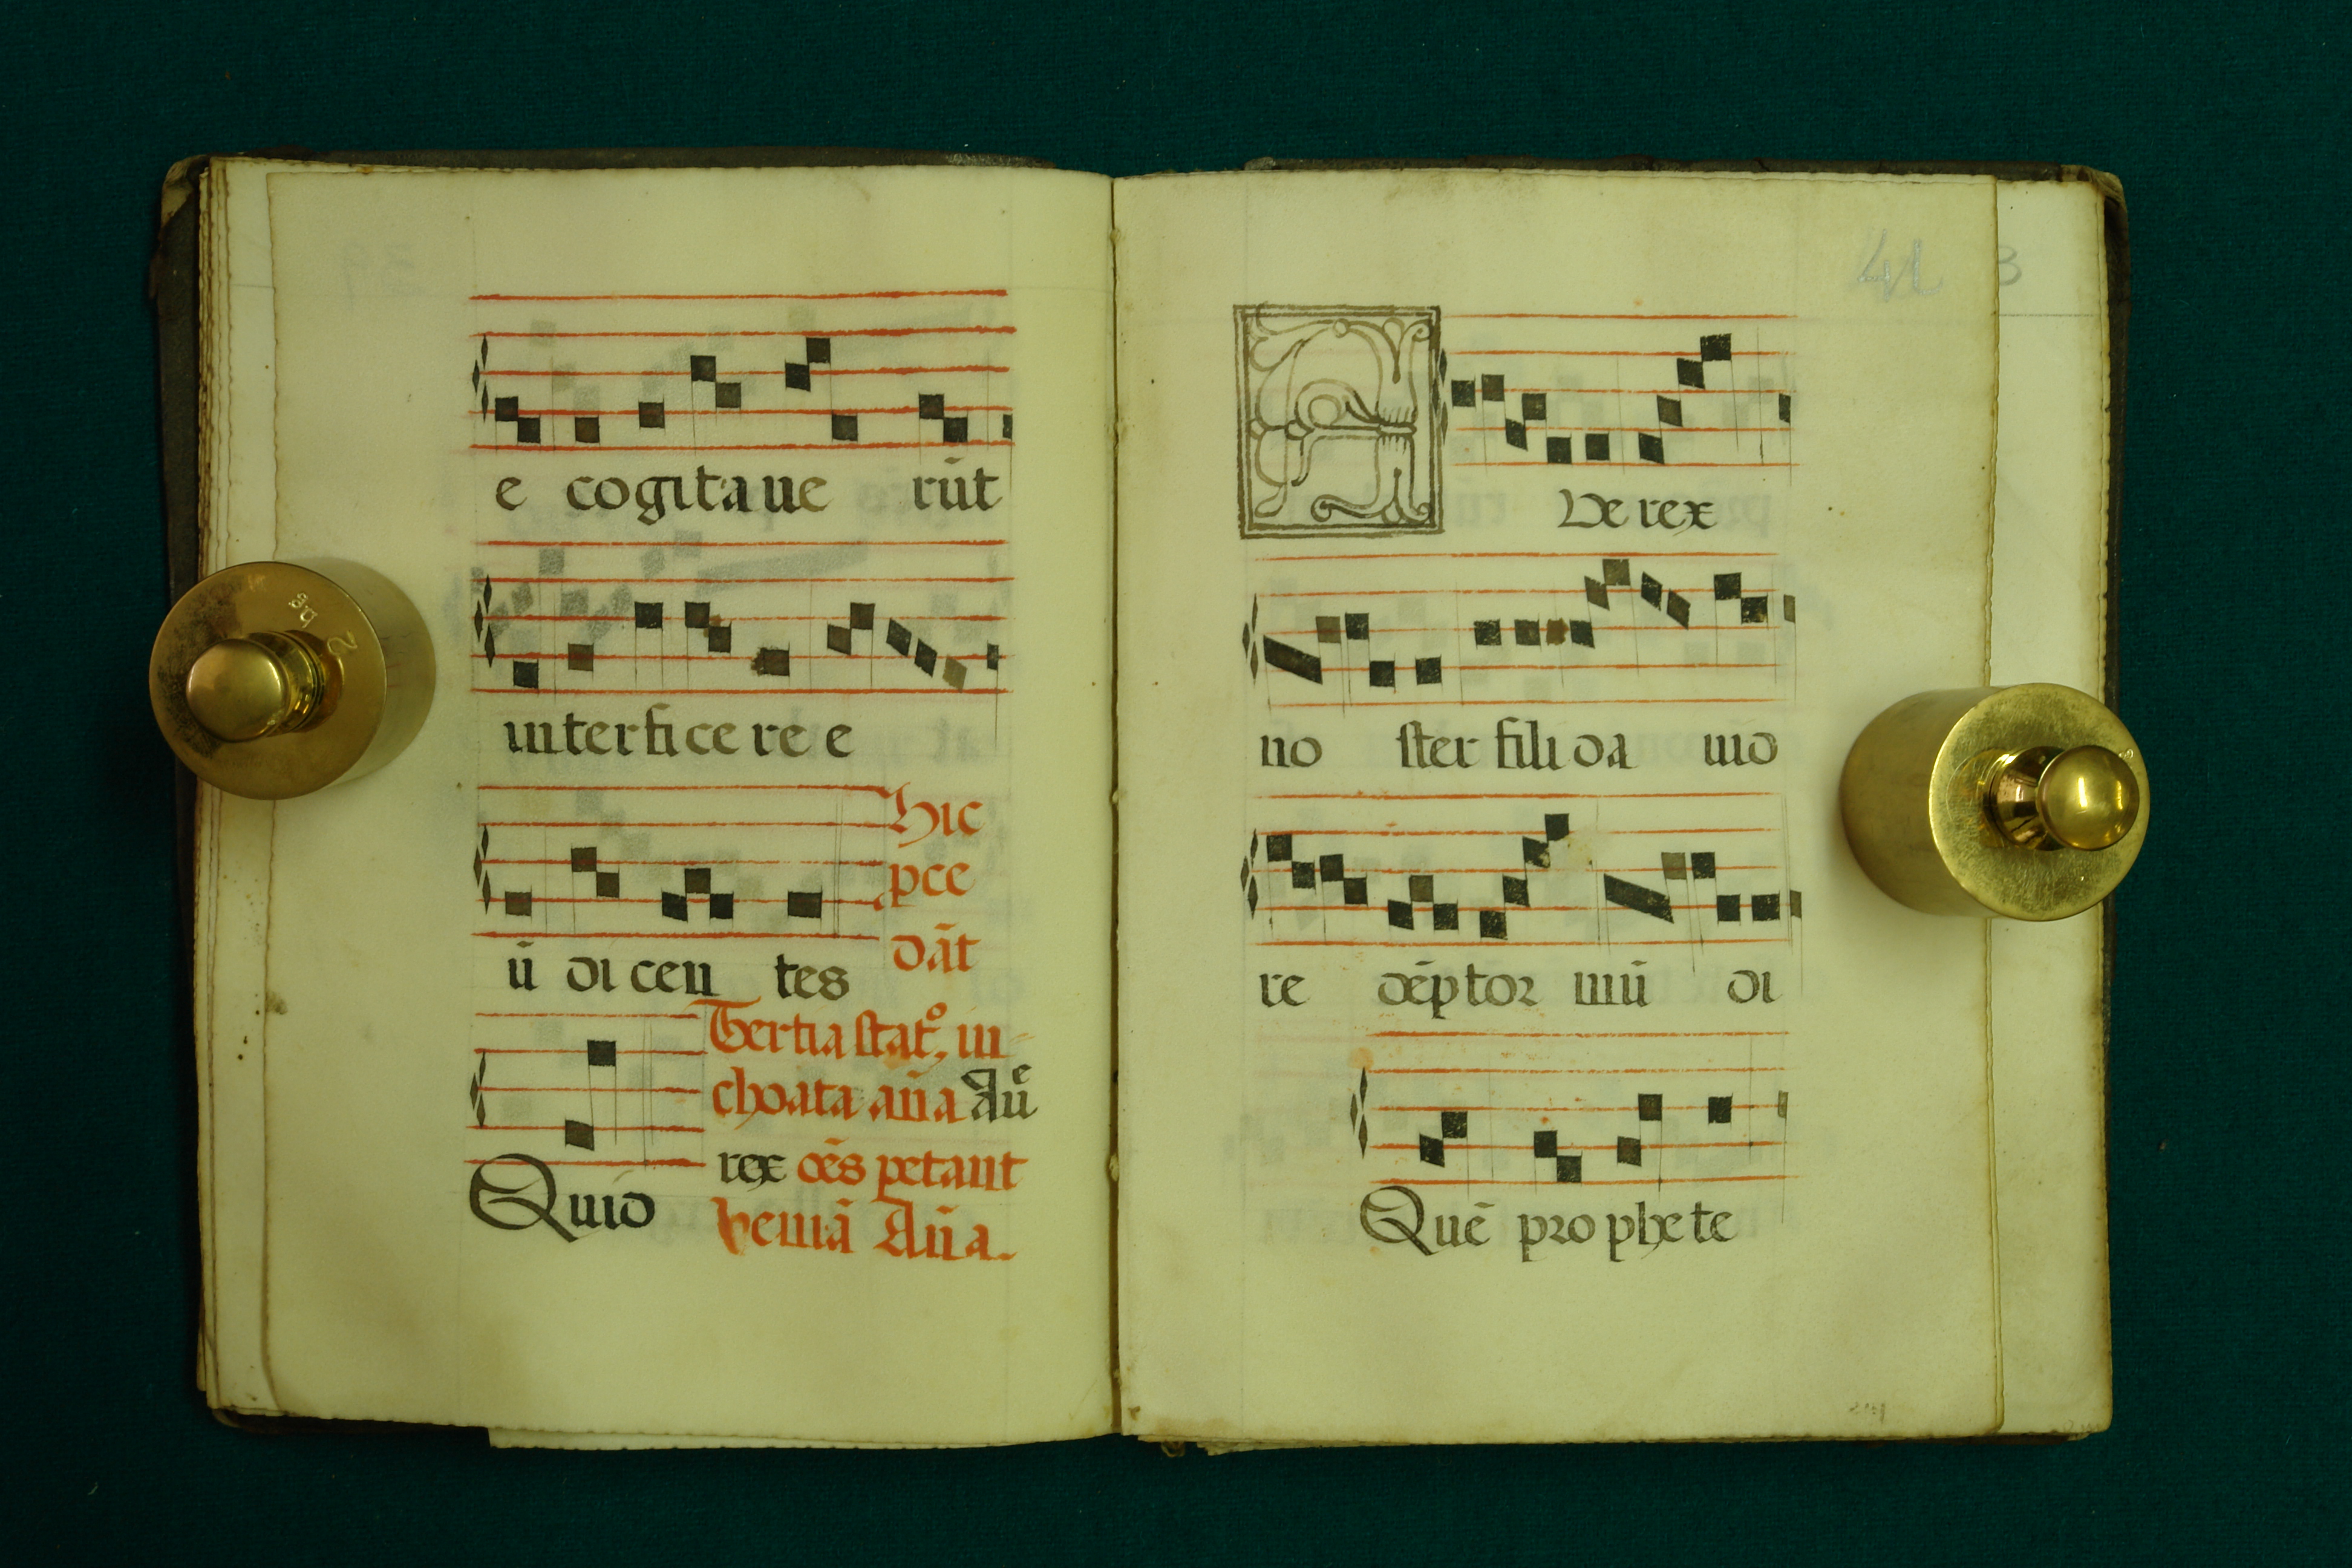 e cogitaue rūt
interficere e
ū dicen tes
Hic
pce
dāt
Quid
Tertia stat⁹, in
choata aña Aue
rex oēs petant
veniā Aña.
41
3
A
Ve rex
no ster fili da uid
re dēptor mū di
Quē prophete